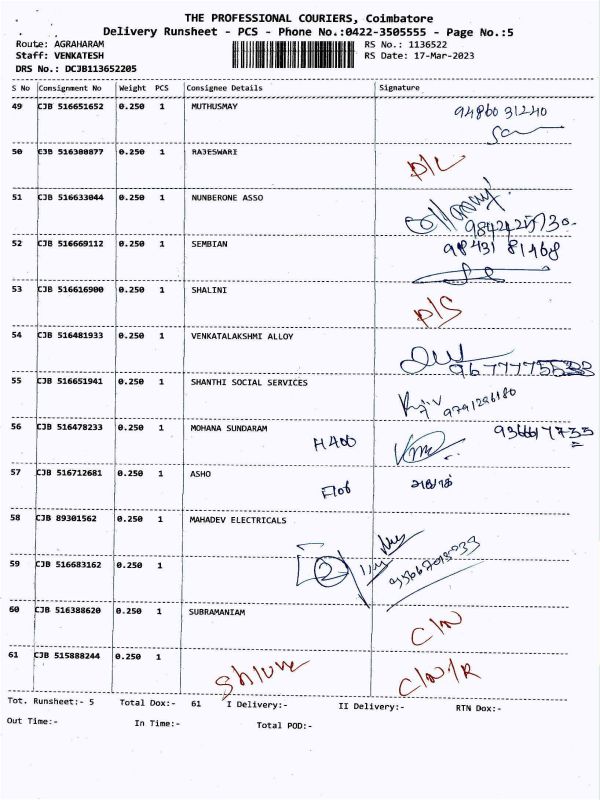 THE PROFESSIONAL COURIERS, Coimbatore
Delivery Runsheet - PCS - Phone No.:0422-3505555 - Page No.:5
Route: AGRAHARAM RS No.: 1136522
Staff: VENKATESH RS Date: 17-Mar-2023
DRS No.: DCJB113652205
S No Consignment No Weight PCS Consignee Details Signature
49 CJB 516651652 0.250 1 MUTHUSMAY 94860 31240
50 CJB 516380877 0.250 1 RAJESWARI D/L
51 CJB 516633044 0.250 1 NUNBERONE ASSO
52 CJB 516669112 0.250 1 SEMBIAN 98431 81468
53 CJB 516616900 0.250 1 SHALINI D/S
54 CJB 516481933 0.250 1 VENKATALAKSHMI ALLOY
55 CJB 516651941 0.250 1 SHANTHI SOCIAL SERVICES 9791296180
56 CJB 516478233 0.250 1 MOHANA SUNDARAM H400
57 CJB 516712681 0.250 1 ASHO F106
58 CJB 89301562 0.250 1 MAHADEV ELECTRICALS
59 CJB 516683162 0.250 1 2
60 CJB 516388620 0.250 1 SUBRAMANIAM C/N
61 CJB 515888244 0.250 1 C/N/R
Tot. Runsheet:- 5 Total Dox:- 61 I Delivery:- II Delivery:- RTN Dox:-
Out Time:- In Time:- Total POD:-